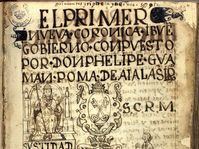 EL PRIMER
NVEVA CORONICA I BVE
GOBIERNO CONPVESTO
POR DON PHELIPE GVA
MAN POMA DE AIALA
S.C.R.M.